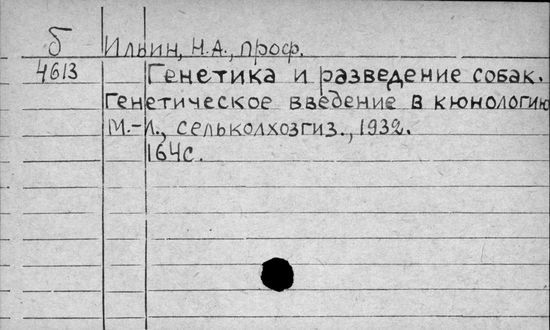 б Ильин, Н.А., проф.
4613 Генетика и разведение собак.
Генетическое введение в кюнологию
М.-Л., сельколхозгиз., 1932.
164с.